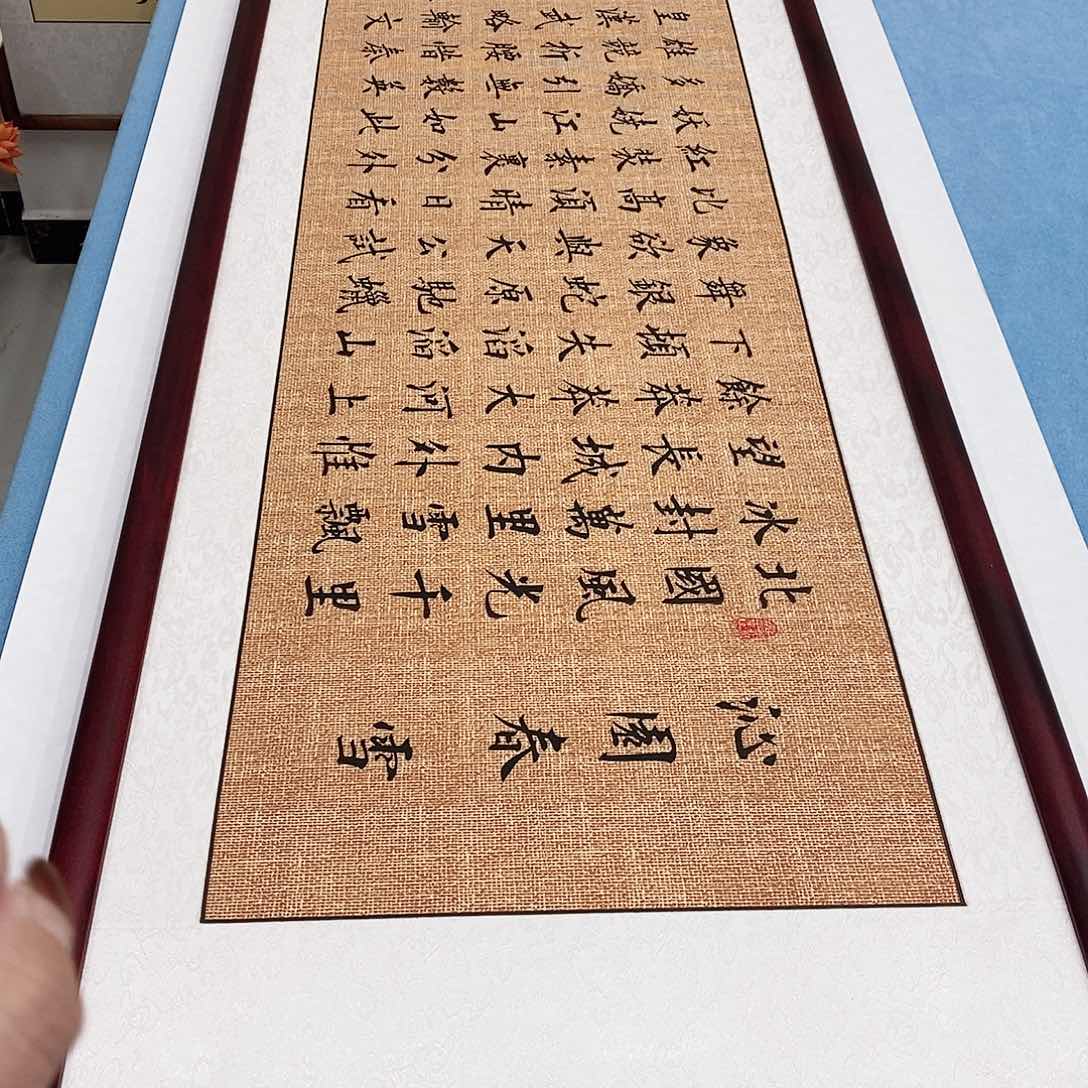 沁園春雪
北國風光千里
冰封萬里雪飄
望長城內外惟
餘莽莽大河上
下頓失滔滔山
舞銀蛇原馳蠟
象欲與天公試
比高須晴日看
紅裝素裹分外
妖嬈江山如此
多嬌引無數英
雄競折腰惜秦
皇漢武略輸文